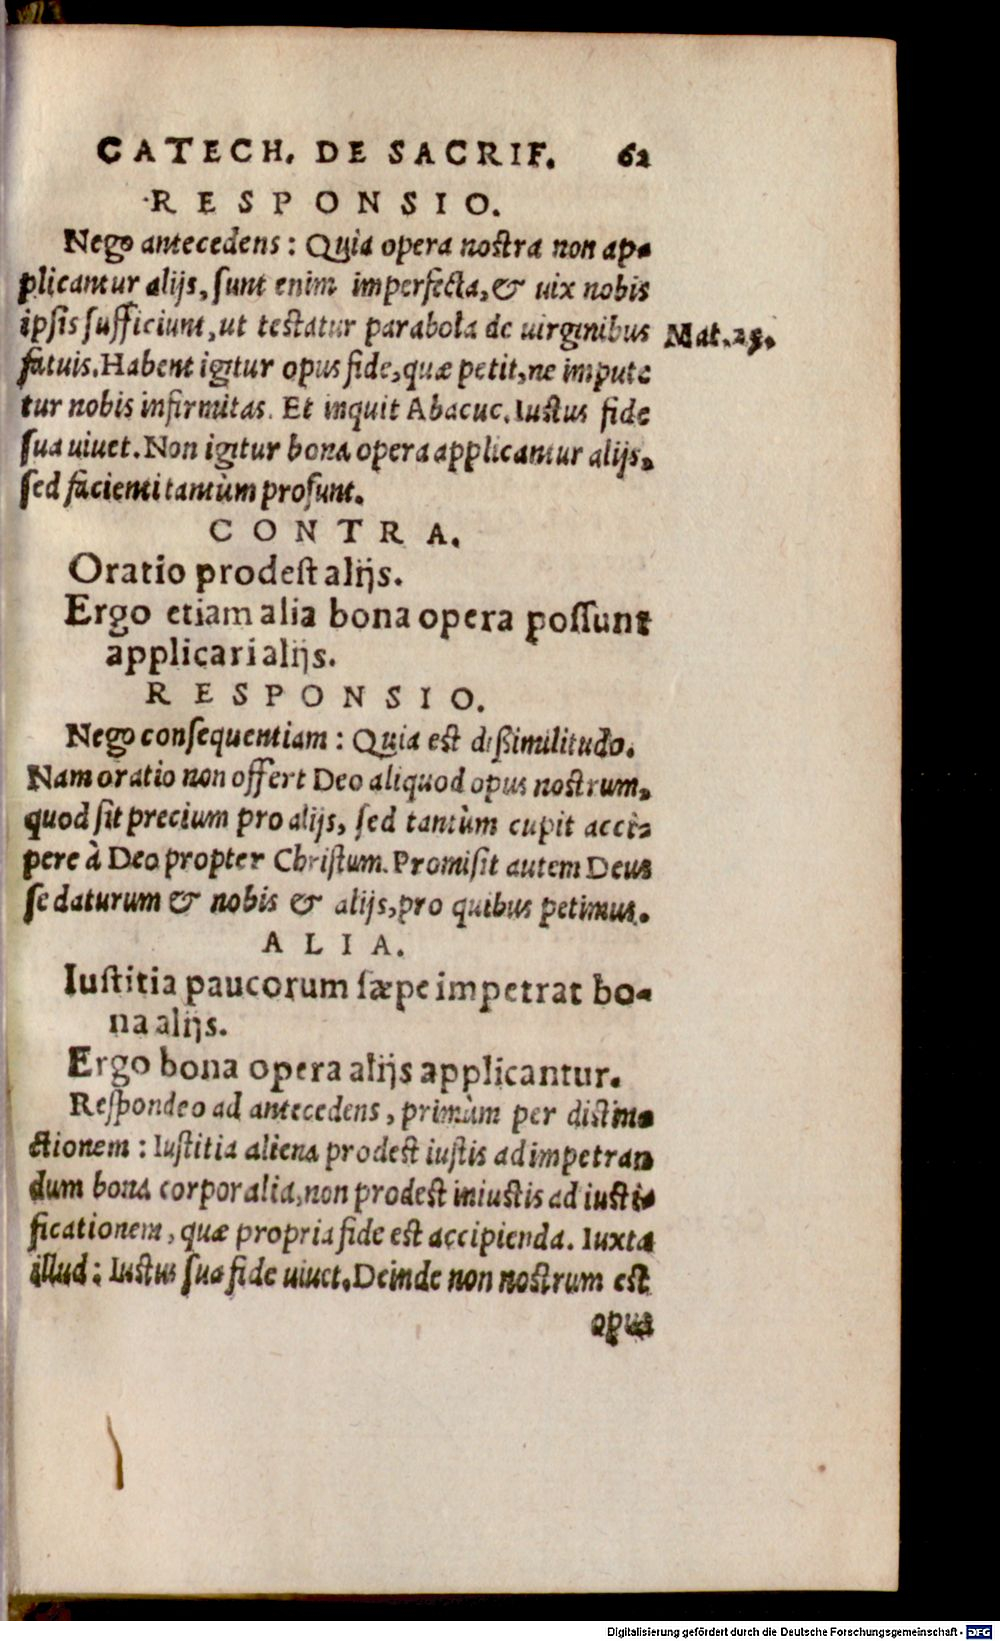 CATECH. DE SACRIF. 62
RESPONSIO.
Nego antecedens: Quia opera nostra non ap-
plicantur alijs, sunt enim imperfecta, & uix nobis
ipsis sufficiunt, ut testatur parabola de uirginibus Mat. 25.
fatuis. Habent igitur opus fide, quæ petit, ne impute
tur nobis infirmitas. Et inquit Abacuc. Iustus fide
sua uiuet. Non igitur bona opera applicantur alijs,
sed facienti tantùm prosunt.
CONTRA.
Oratio prodest alijs.
Ergo etiam alia bona opera possunt
applicari alijs.
RESPONSIO.
Nego consequentiam: Quia est dißimilitudo.
Nam oratio non offert Deo aliquod opus nostrum,
quod sit precium pro alijs, sed tantùm cupit acci-
pere à Deo propter Christum. Promisit autem Deus
se daturum & nobis & alijs, pro quibus petimus.
ALIA.
Iustitia paucorum sæpe impetrat bo-
na alijs.
Ergo bona opera alijs applicantur.
Respondeo ad antecedens, primùm per distin-
ctionem: Iustitia aliena prodest iustis ad impetran
dum bona corporalia, non prodest iniustis ad iusti-
ficationem, quæ propria fide est accipienda. Iuxta
illud: Iustus sua fide uiuet. Deinde non nostrum est
opus
Digitalisierung gefördert durch die Deutsche Forschungsgemeinschaft - DFG